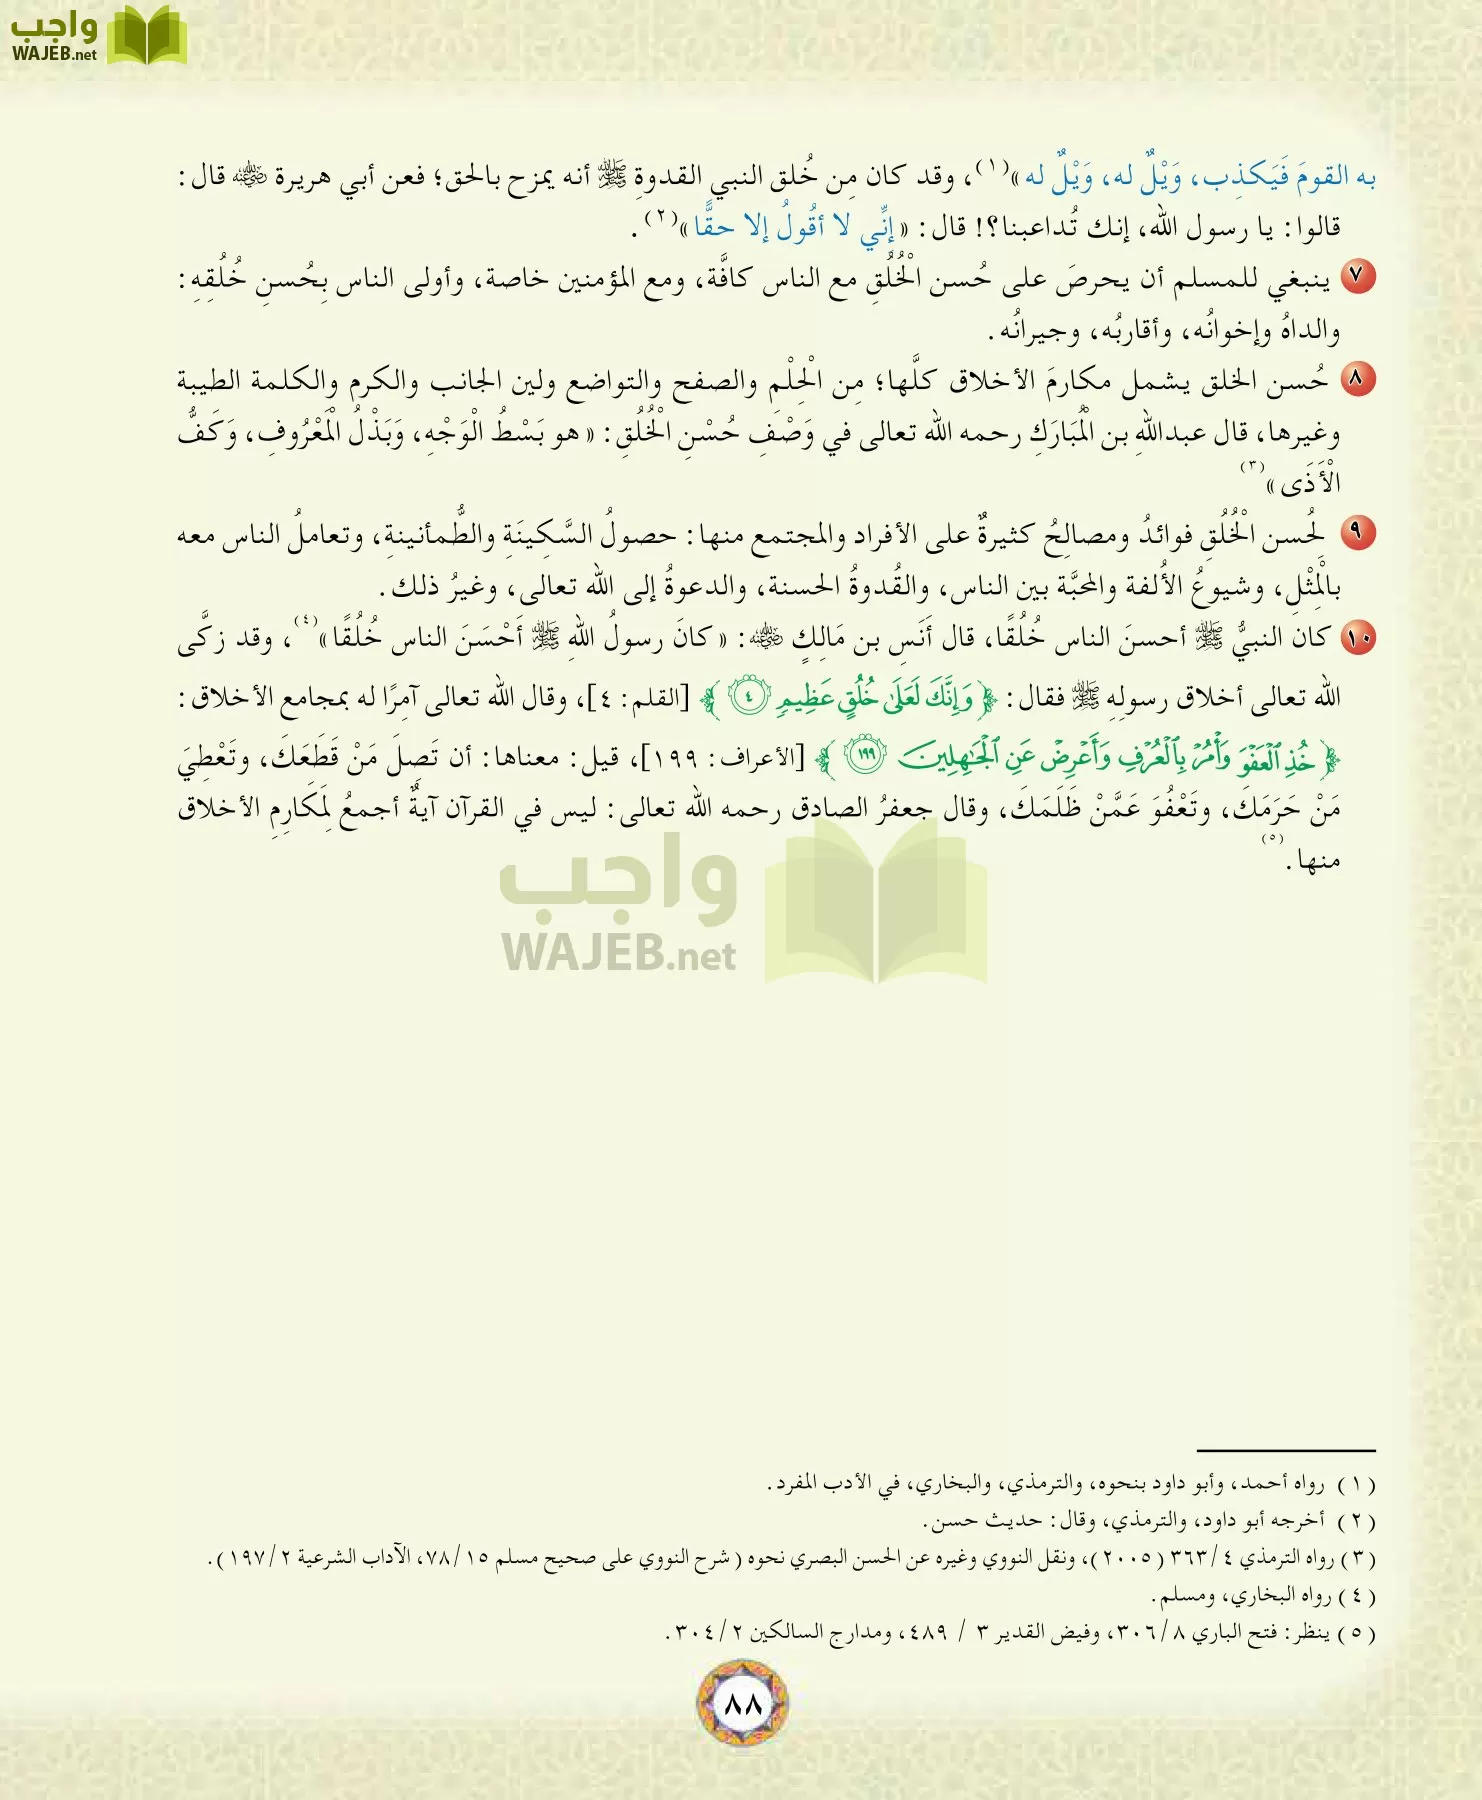 واجب
WAJEB.net
به القومَ فَيَكذِب، وَيْلٌ له، وَيْلٌ له»(١)، وقد كان مِن خُلق النبي القدوةِ ﷺ أنه يمزح بالحق؛ فعن أبي هريرة ﵁ قال:
قالوا: يا رسول الله، إنك تُداعبنا؟! قال: «إنِّي لا أقُولُ إلا حقًّا»(٢).
٧ ينبغي للمسلم أن يحرصَ على حُسن الْخُلُقِ مع الناس كافَّة، ومع المؤمنين خاصة، وأولى الناس بِحُسنِ خُلُقِهِ:
والداهُ وإخوانُه، وأقاربُه، وجيرانُه.
٨ حُسن الخلق يشمل مكارمَ الأخلاق كلَّها؛ مِن الْحِلْم والصفح والتواضع ولين الجانب والكرم والكلمة الطيبة
وغيرها، قال عبدالله بن الْمُبَارَكِ رحمه الله تعالى في وَصْفِ حُسْنِ الْخُلُقِ: «هو بَسْطُ الْوَجْهِ، وَبَذْلُ الْمَعْرُوفِ، وَكَفُّ
الْأَذَى»(٣)
٩ لِحُسن الْخُلُقِ فوائدُ ومصالِحُ كثيرةٌ على الأفراد والمجتمع منها: حصولُ السَّكِينَةِ والطُّمأنينةِ، وتعاملُ الناس معه
بالْمِثْلِ، وشيوعُ الأُلفة والمحبَّة بين الناس، والقُدوةُ الحسنة، والدعوةُ إلى الله تعالى، وغيرُ ذلك.
١٠ كان النبيُّ ﷺ أحسنَ الناس خُلُقًا، قال أنَسِ بن مَالِكٍ ﵁: «كانَ رسولُ اللهِ ﷺ أَحْسَنَ الناس خُلُقًا»(٤)، وقد زكَّى
الله تعالى أخلاق رسولِهِ ﷺ فقال: ﴿وَإِنَّكَ لَعَلَىٰ خُلُقٍ عَظِيمٖ ٤﴾ [القلم: ٤]، وقال الله تعالى آمِرًا له بمجامع الأخلاق:
﴿خُذِ ٱلۡعَفۡوَ وَأۡمُرۡ بِٱلۡعُرۡفِ وَأَعۡرِضۡ عَنِ ٱلۡجَٰهِلِينَ ١٩٩﴾ [الأعراف: ١٩٩]، قيل: معناها: أن تَصِلَ مَنْ قَطَعَكَ، وتَعْطِيَ
مَنْ حَرَمَكَ، وتَعْفُوَ عَمَّنْ ظَلَمَكَ، وقال جعفرُ الصادق رحمه الله تعالى: ليس في القرآن آيةٌ أجمعُ لِمَكارِمِ الأخلاق
منها.(٥)
واجب
WAJEB.net
(١) رواه أحمد، وأبو داود بنحوه، والترمذي، والبخاري، في الأدب المفرد.
(٢) أخرجه أبو داود، والترمذي، وقال: حديث حسن.
(٣) رواه الترمذي ٣٦٣/٤ (٢٠٠٥)، ونقل النووي وغيره عن الحسن البصري نحوه (شرح النووي على صحيح مسلم ٧٨/١٥، الآداب الشرعية ١٩٧/٢).
(٤) رواه البخاري، ومسلم.
(٥) ينظر: فتح الباري ٣٠٦/٨، وفيض القدير ٣ / ٤٨٩، ومدارج السالكين ٣٠٤/٢.
٨٨